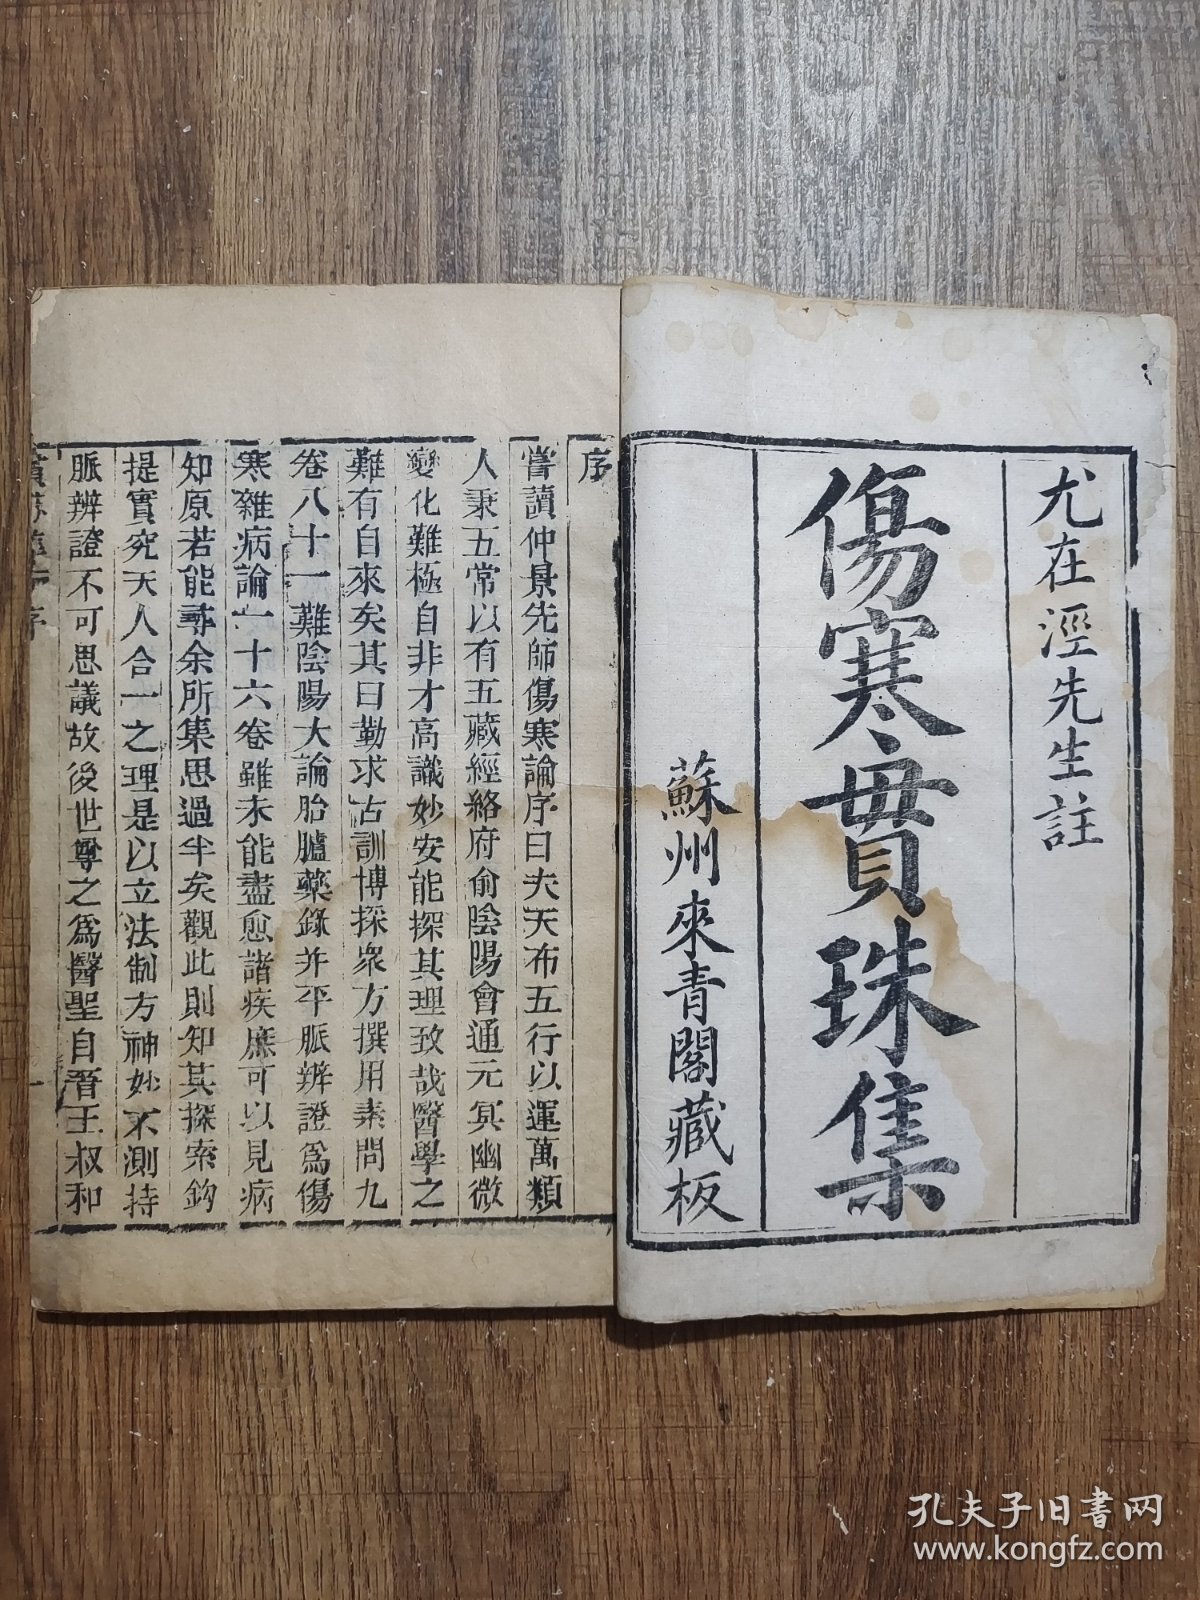 尤在涇先生註
傷寒貫珠集
蘇州來青閣藏板
序
嘗讀仲景先師傷寒論序曰夫天布五行以運萬類
人秉五常以有五藏經絡府俞陰陽會通元冥幽微
變化難極自非才高識妙安能探其理致哉醫學之
難有自來矣其曰勤求古訓博採衆方撰用素問九
卷八十一難陰陽大論胎臚藥錄并平脈辨證爲傷
寒雜病論一十六卷雖未能盡愈諸疾庶可以見病
知原若能尋余所集思過半矣觀此則知其探索鈎
提實究天人合一之理是以立法制方神妙不測持
脈辨證不可思議故後世尊之爲醫聖自晉王叔和
孔夫子旧书网
www.kongfz.com